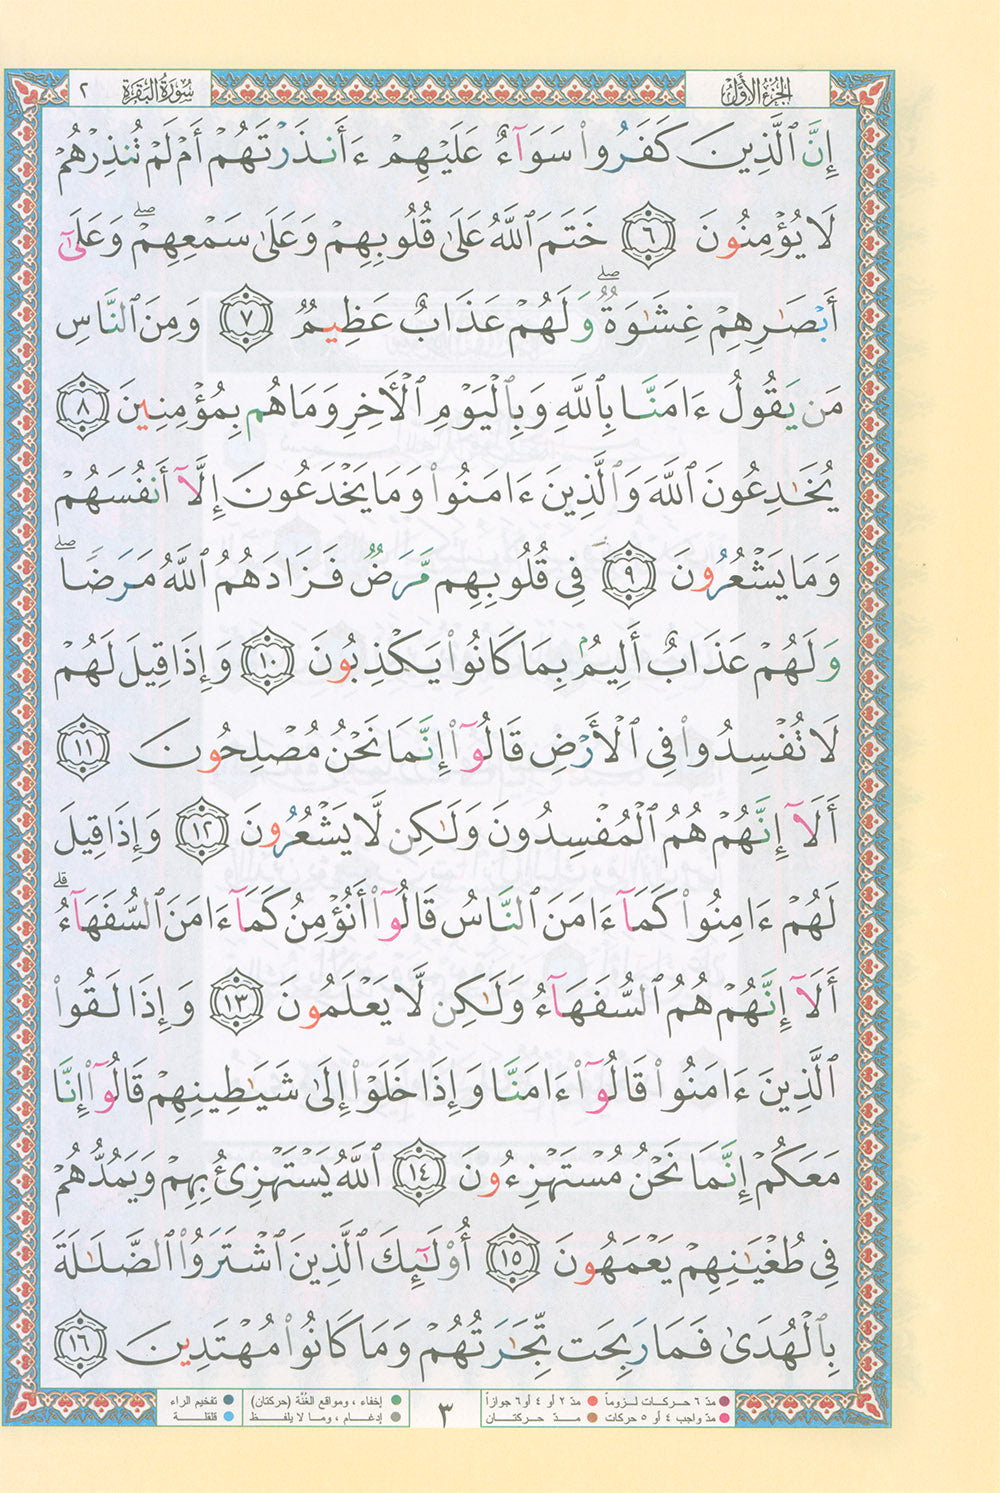 سُورَةُ البَقَرَة ٢
الجُزءُ الأَوَّلُ
إِنَّ ٱلَّذِينَ كَفَرُوا۟ سَوَآءٌ عَلَيْهِمْ ءَأَنذَرْتَهُمْ أَمْ لَمْ تُنذِرْهُمْ
لَا يُؤْمِنُونَ ٦ خَتَمَ ٱللَّهُ عَلَىٰ قُلُوبِهِمْ وَعَلَىٰ سَمْعِهِمْ ۖ وَعَلَىٰٓ
أَبْصَـٰرِهِمْ غِشَـٰوَةٌ ۖ وَلَهُمْ عَذَابٌ عَظِيمٌ ٧ وَمِنَ ٱلنَّاسِ
مَن يَقُولُ ءَامَنَّا بِٱللَّهِ وَبِٱلْيَوْمِ ٱلْـَٔاخِرِ وَمَا هُم بِمُؤْمِنِينَ ٨
يُخَـٰدِعُونَ ٱللَّهَ وَٱلَّذِينَ ءَامَنُوا۟ وَمَا يَخْدَعُونَ إِلَّآ أَنفُسَهُمْ
وَمَا يَشْعُرُونَ ٩ فِى قُلُوبِهِم مَّرَضٌ فَزَادَهُمُ ٱللَّهُ مَرَضًا ۖ
وَلَهُمْ عَذَابٌ أَلِيمٌۢ بِمَا كَانُوا۟ يَكْذِبُونَ ١٠ وَإِذَا قِيلَ لَهُمْ
لَا تُفْسِدُوا۟ فِى ٱلْأَرْضِ قَالُوٓا۟ إِنَّمَا نَحْنُ مُصْلِحُونَ ١١
أَلَآ إِنَّهُمْ هُمُ ٱلْمُفْسِدُونَ وَلَـٰكِن لَّا يَشْعُرُونَ ١٢ وَإِذَا قِيلَ
لَهُمْ ءَامِنُوا۟ كَمَآ ءَامَنَ ٱلنَّاسُ قَالُوٓا۟ أَنُؤْمِنُ كَمَآ ءَامَنَ ٱلسُّفَهَآءُ ۗ
أَلَآ إِنَّهُمْ هُمُ ٱلسُّفَهَآءُ وَلَـٰكِن لَّا يَعْلَمُونَ ١٣ وَإِذَا لَقُوا۟
ٱلَّذِينَ ءَامَنُوا۟ قَالُوٓا۟ ءَامَنَّا وَإِذَا خَلَوْا۟ إِلَىٰ شَيَـٰطِينِهِمْ قَالُوٓا۟ إِنَّا
مَعَكُمْ إِنَّمَا نَحْنُ مُسْتَهْزِءُونَ ١٤ ٱللَّهُ يَسْتَهْزِئُ بِهِمْ وَيَمُدُّهُمْ
فِى طُغْيَـٰنِهِمْ يَعْمَهُونَ ١٥ أُو۟لَـٰٓئِكَ ٱلَّذِينَ ٱشْتَرَوُا۟ ٱلضَّلَـٰلَةَ
بِٱلْهُدَىٰ فَمَا رَبِحَت تِّجَـٰرَتُهُمْ وَمَا كَانُوا۟ مُهْتَدِينَ ١٦
مدّ ٦ حركات لـزومـاً مدّ ٢ أو ٤ أو ٦ جوازاً
مدّ واجب ٤ أو ٥ حركات مـدّ حـركتـان
٣
إخفاء ، ومواقع الغُنَّة (حركتان) تفخيم الراء
إدغـام ، ومـا لا يلفـظ قلقلـة